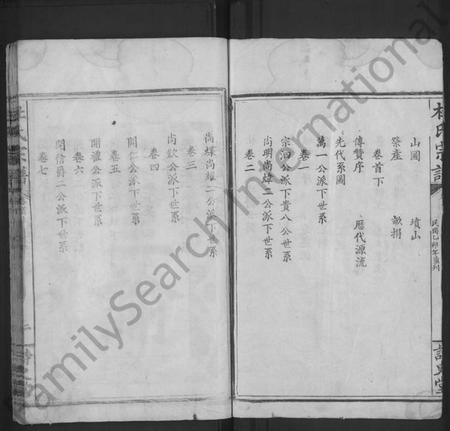 杜氏宗譜
民國乙卯年重刊
山圖 墳山
祭產 畝捐
卷首下
傳贊序 歷代源流
先代系圖
卷一
萬一公派下世系
宗泗公派下貴八公世系
卷二
尚明尚雄二公派下世系
卷三
尚採尚雄二公派下世系
卷四
尚欽公派下世系
卷五
開仁公派下世系
卷六
開禮公派下世系
卷七
開信爵二公派下世系
FamilySearch International